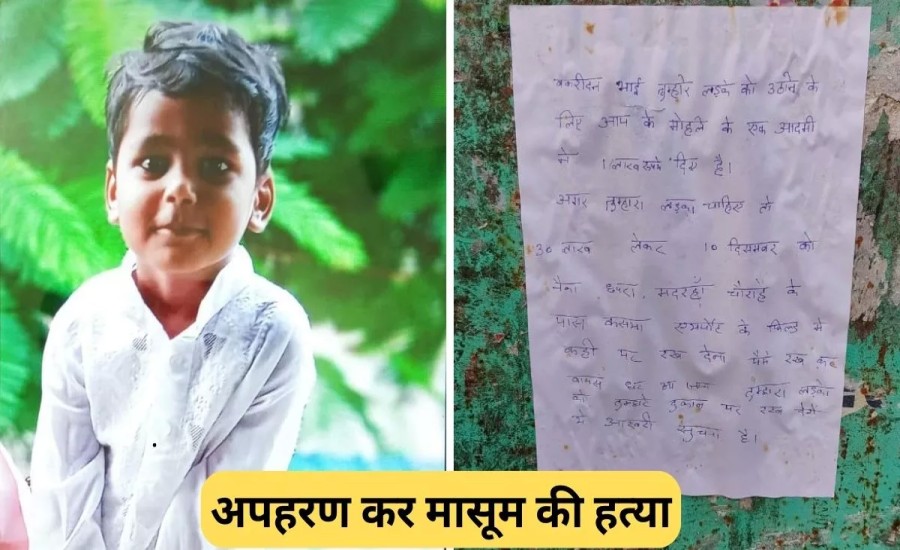 बकरीदन भाई तुम्हारे लड़के को उठाने के
लिए आप के मोहले के एक आदमी
ने 1 लाख रुपये दिए है।
अगर तुम्हारा लड़का चाहिए तो
30 लाख लेकर 10 दिसम्बर को
मैला छपरा मदरहाँ चौराहे के
पास कसया एअरपोर्ट के फिल्ड मे
कही पर रख देना पैसे रख कर
वापस घर आ जाना तुम्हारा लड़का
को तुम्हारे दुकान पर रख देगें
ये आखरी सुचना है।
अपहरण कर मासूम की हत्या